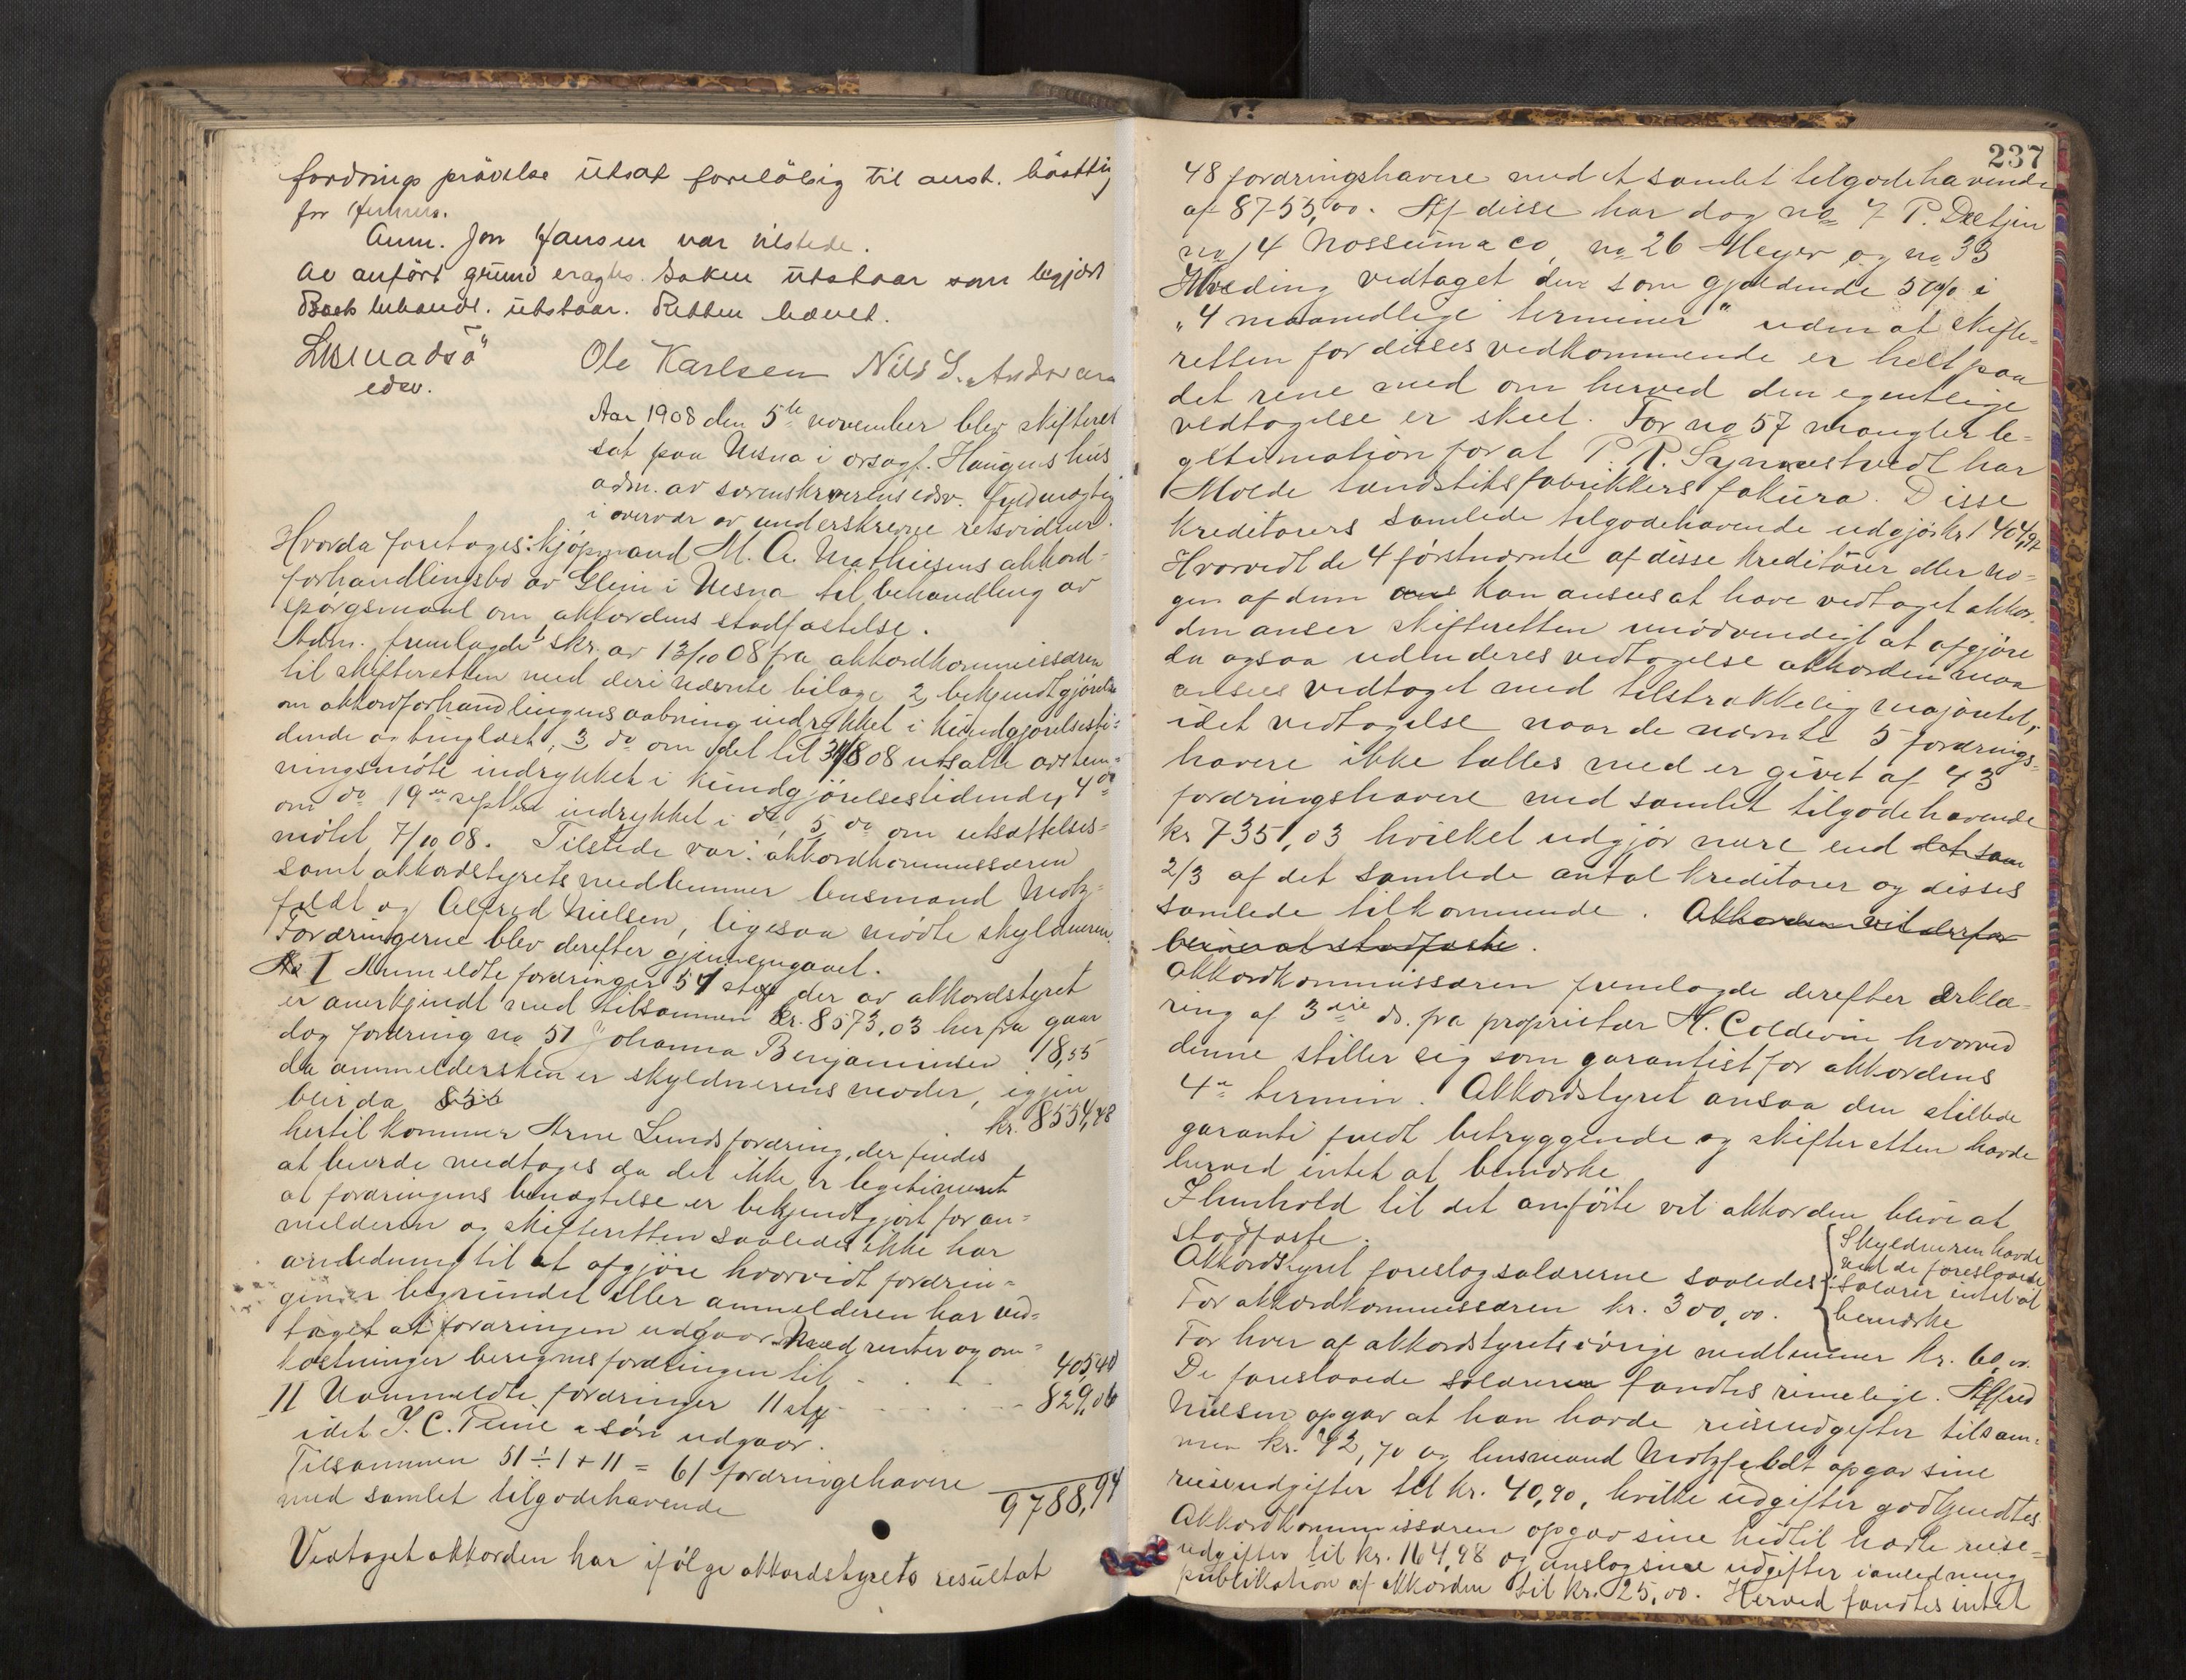 fordrings prøvelse utsat foreløbig til anst.
for
Anm. Jon Hansen var tilstede.
Av anført grund eragtes saken utstaar som begjært
Boets behandl. utstaar. Retten hævet.
edsv.
Ole Karlsen Nils S. Andersen
Aar 1908 den 5te november blev skifteret
sat paa Nesna i orsagf. Haugens hus
adm. av sorenskriverens edsv. fuldmægtig
i overvær av underskrevne retsvidner.
Hvorda foretoges: Kjøpmand M. A. Mathisens akkord-
forhandlingsbo av Glein i Nesna til behandling av
spørgsmaal om akkordens stadfæstelse.
Adm. fremlagde 1 skr. av 13/10 08 fra akkordkommissæren
til skifteretten med deri nævnte bilage, 2, bekjendtgjørelse
om akkordforhandlingens aabning indrykket i Kundgjørelsesti-
dende og tinglæst, 3, do om det til 31/8 08 utsatte avstem-
ningsmøte indrykket i Kundgjørelsestidende, 4 do
om do 19de septbr indrykket i do, 5 do om utsættelses-
mødet 7/10 08. Tilstede var: akkordkommissæren
samt akkordstyrets medlemmer lensmand Motz-
feldt og Alfred Nielsen, ligesaa mødte skyldneren.
Fordringerne blev derefter gjennemgaaet.
I Anmeldte fordringer 51 stkr der av akkordstyret
er anerkjendt med tilsammen kr. 8573,03 herfra gaar
dog fordring no 51 Johanna Benjaminsen 18,55
da anmeldersken er skyldnerens moder, igjen
blir da 855 kr. 8554,48
hertil kommer Arne Lunds fordring, der findes
at burde medtages da det ikke er legitimeret
at fordringens benægtelse er bekjendtgjort for an-
melderen og skifteretten saaledes ikke har
anledning til at afgjøre hvorvidt fordrin-
gen er begrundet eller anmelderen har ved-
taget at fordringen udgaar. Med renter og om-
kostninger beregnes fordringen til 405,40
II Uanmeldte fordringer 11 stkr 829,06
idet I. C. Piene & søn udgaar.
Tilsammen 51 ÷ 1 + 11 = 61 fordringshavere
med samlet tilgodehavende 9788,94
Vedtaget akkorden har ifølge akkordstyrets resultat
237
48 fordringshavere med et samlet tilgodehavende
af 8755,00. Af disse har dog no 7 P. Deetjen
no 14 Nossum & Co, no 26 Meyer og no 33
Hveding vedtaget den som gjældende 50% i
"4 maanedlige terminer" uden at skifte-
retten for disses vedkommende er helt paa
det rene med om herved den egentlige
vedtagelse er skeet. For no 57 mangler le-
gitimation for at P. R. Synnestvedt har
Molde tændstiksfabrikkers fakura. Disse
kreditorers samlede tilgodehavende udgjør kr 1404,97
Hvorvidt de 4 førstnævnte af disse kreditorer eller no-
gen af dem ans kan ansees at have vedtaget akkor-
den anser skifteretten unødvendigt at afgjøre
da ogsaa uden deres vedtagelse akkorden maa
ansees vedtaget med tilstrækkelig majoritet,
idet vedtagelse naar de nævnte 5 fordrings-
havere ikke tælles med er givet af 43
fordringshavere med samlet tilgodehavende
kr 7351,03 hvilket udgjør mere end det sam
2/3 af det samlede antal kreditorer og disses
samlede tilkommende. Akkorden vil derfor
blive at stadfæste.
Akkordkommissæren fremlagde derefter erklæ-
ring af 3die ds. fra proprietær H. Coldevin hvorved
denne stiller sig som garantist for akkordens
4de termin. Akkordstyret ansaa den stillede
garanti fuldt betryggende og skifteretten havde
herved intet at bemærke.
I henhold til det anførte vil akkorden blive at
stadfæste.
Akkordstyret foreslog salærerne saaledes:
For akkordkommissæren kr. 300,00.
Skyldneren havde
ved de foreslaaede
salærer intet at
bemærke
For hver af akkordstyrets øvrige medlemmer kr. 60,00.
De foreslaaede salærer fandtes rimelige. Alfred
Nielsen opgav at han havde reiseudgifter tilsam-
men kr. 42,70 og lensmand Motzfeldt opgav sine
reiseudgifter til kr. 40,90, hvilke udgifter godkjendtes.
Akkordkommissæren opgav sine hidtil havte reise-
udgifter til kr. 164,98 og anslog sine udgifter i anledning
publikation af akkorden til kr. 25,00. Herved fandtes intet